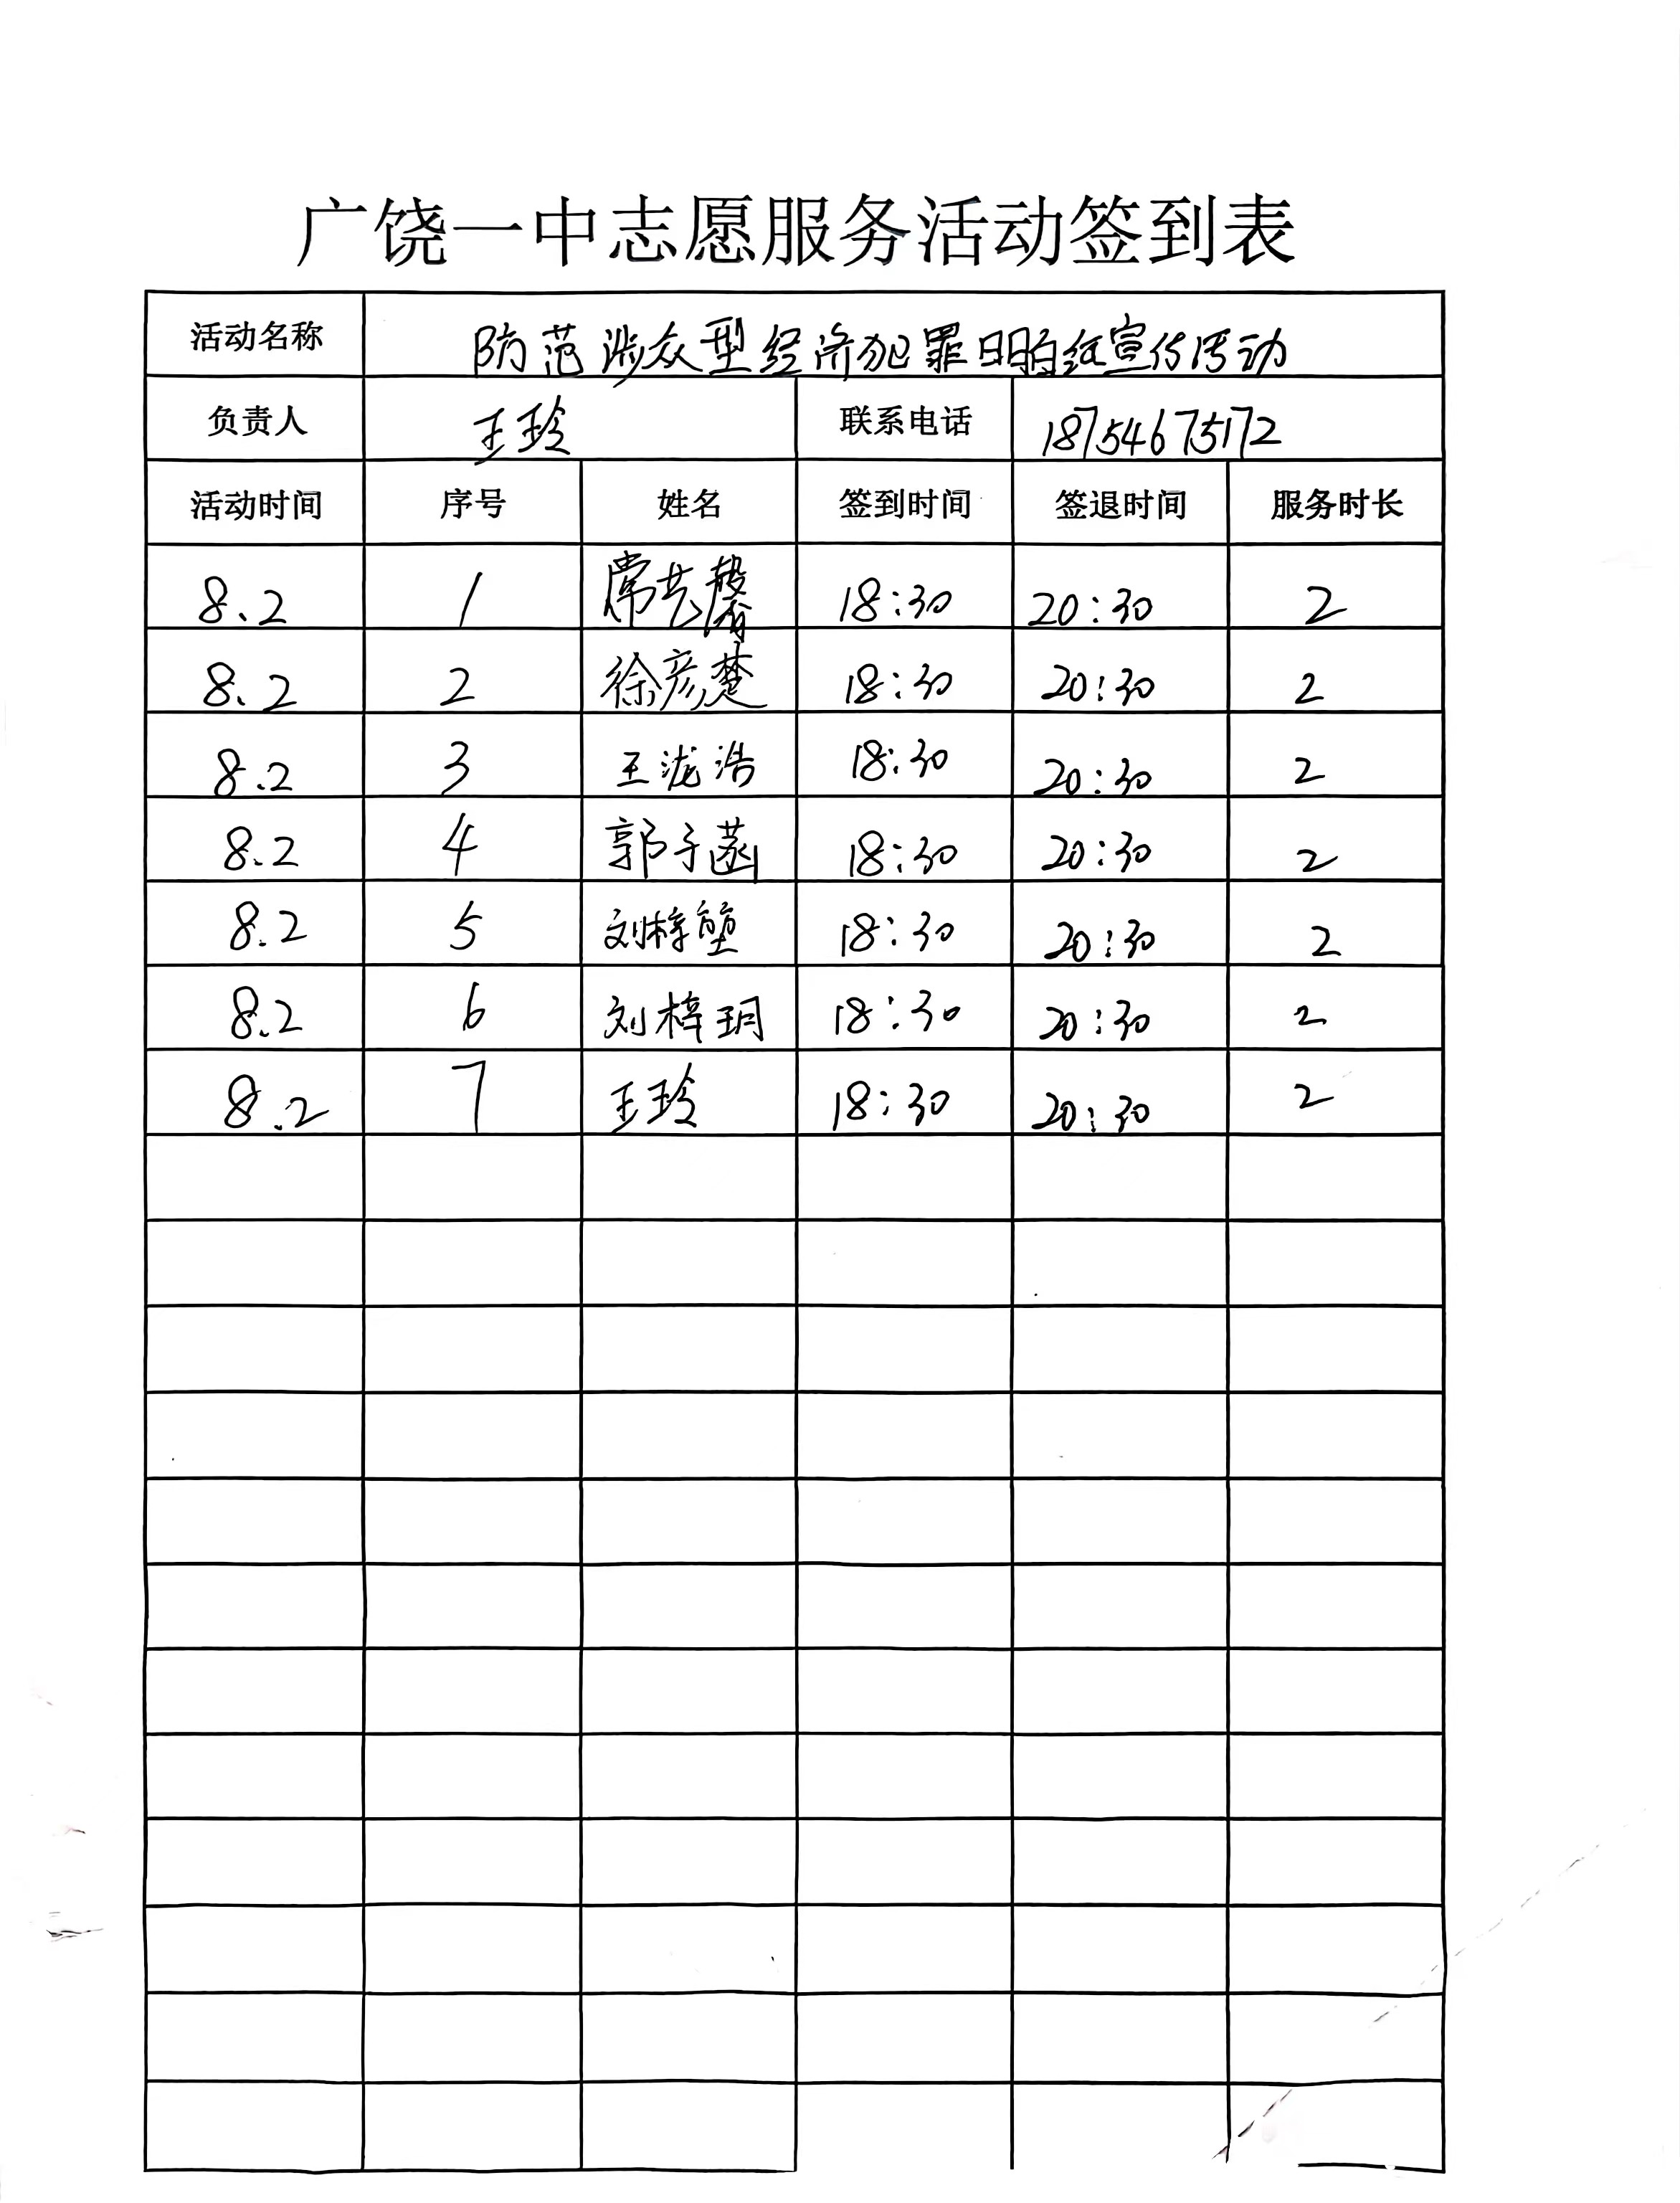 广饶一中志愿服务活动签到表
活动名称 防范涉众型经济犯罪 宣传活动
负责人 王玲 联系电话 18754675172
活动时间 序号 姓名 签到时间 签退时间 服务时长
8.2 1 常艺馨 18:30 20:30 2
8.2 2 徐彦楚 18:30 20:30 2
8.2 3 王泷浩 18:30 20:30 2
8.2 4 郭子菡 18:30 20:30 2
8.2 5 刘梓堃 18:30 20:30 2
8.2 6 刘梓玥 18:30 20:30 2
8.2 7 王玲 18:30 20:30 2